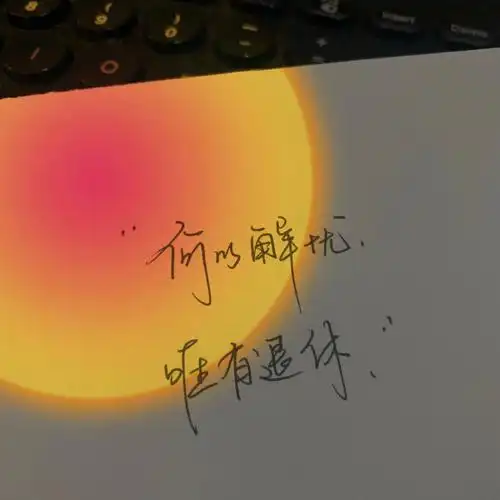 "何以解扰.
唯有退休."